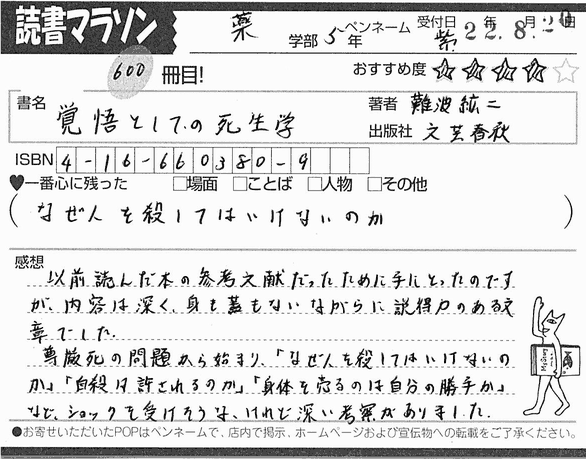 読書マラソン
薬 学部 5年 ペンネーム 紫 受付日 22年 8月20日
600 冊目!
おすすめ度 ★★★★☆
書名 覚悟としての死生学
著者 難波紘二
出版社 文芸春秋
ISBN 4-16-660380-9
♥一番心に残った □場面 □ことば □人物 □その他
(なぜ人を殺してはいけないのか)
感想
以前読んだ本の参考文献だったために手にとったのです
が、内容は深く、身も蓋もないながらに説得力のある文
章でした.
尊厳死の問題から始まり、「なぜ人を殺してはいけないの
か」「自殺は許されるのか」「身体を売るのは自分の勝手か」
など、ショックを受けそうな、けれど深い考察がありました.
●お寄せいただいたPOPはペンネームで、店内で掲示、ホームページおよび宣伝物への転載をご了承ください。